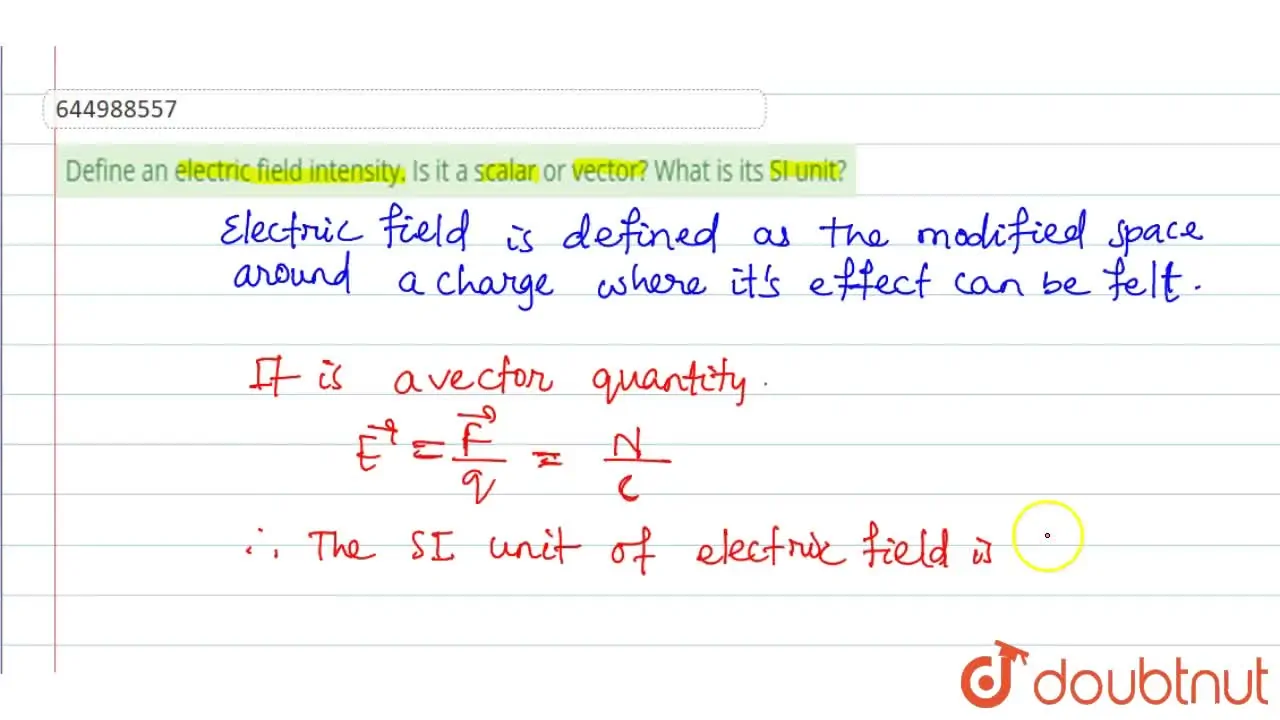 644988557
Define an electric field intensity. Is it a scalar or vector? What is its SI unit?
Electric field is defined as the modified space
around a charge where it's effect can be felt.
It is a vector quantity.
E⃗ = F⃗/q = N/C
∴ The SI unit of electric field is
doubtnut